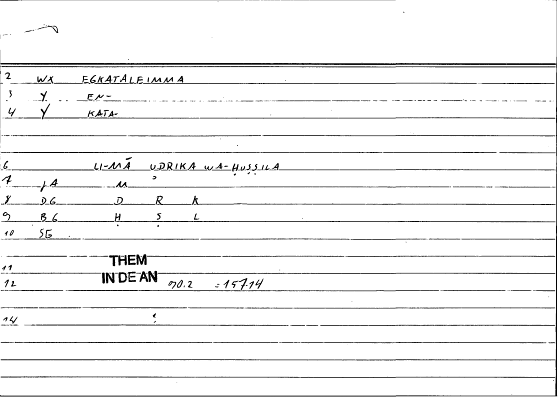 2 WX EGKATALEIMMA
3 Y EN-
4 Y KATA-
6 LI-MĀ UDRIKA WA-ḤUṢṢILA
7 JA M
8 DG D R K
9 BG Ḥ Ṣ L
10 SE
11 THEM
12 IN DE AN 70.2 = 15714
14